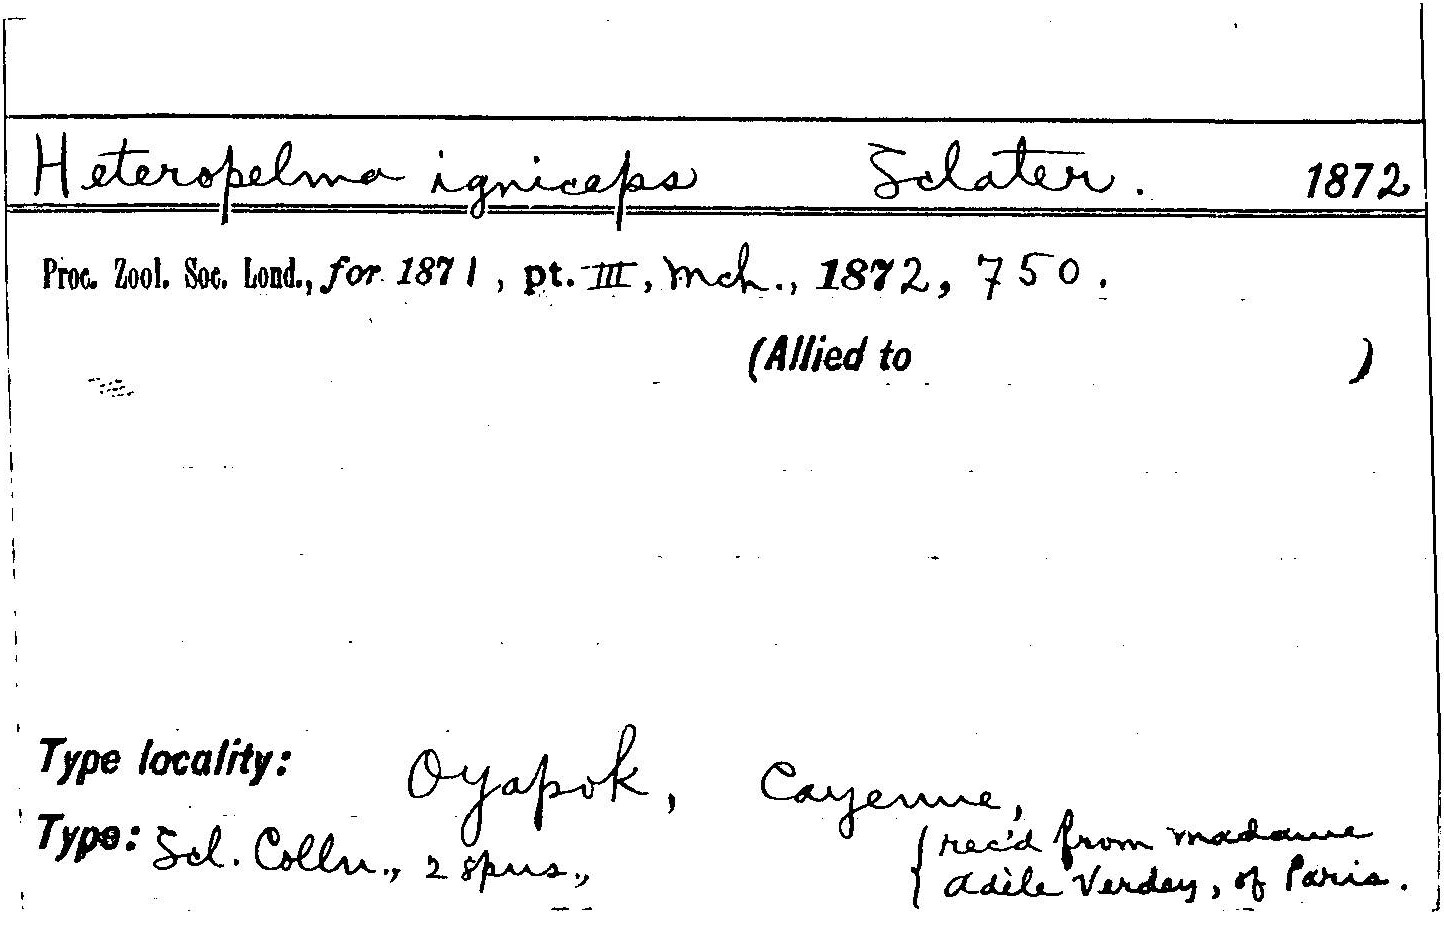 Heteropelma igniceps Sclater. 1872
Proc. Zool. Soc. Lond., for 1871, pt. III, Mch., 1872, 750.
(Allied to )
Type locality: Oyapok, Cayenne,
Type: Scl. Colln., 2 spms., { rec'd from Madame
Adèle Verdey, of Paris.